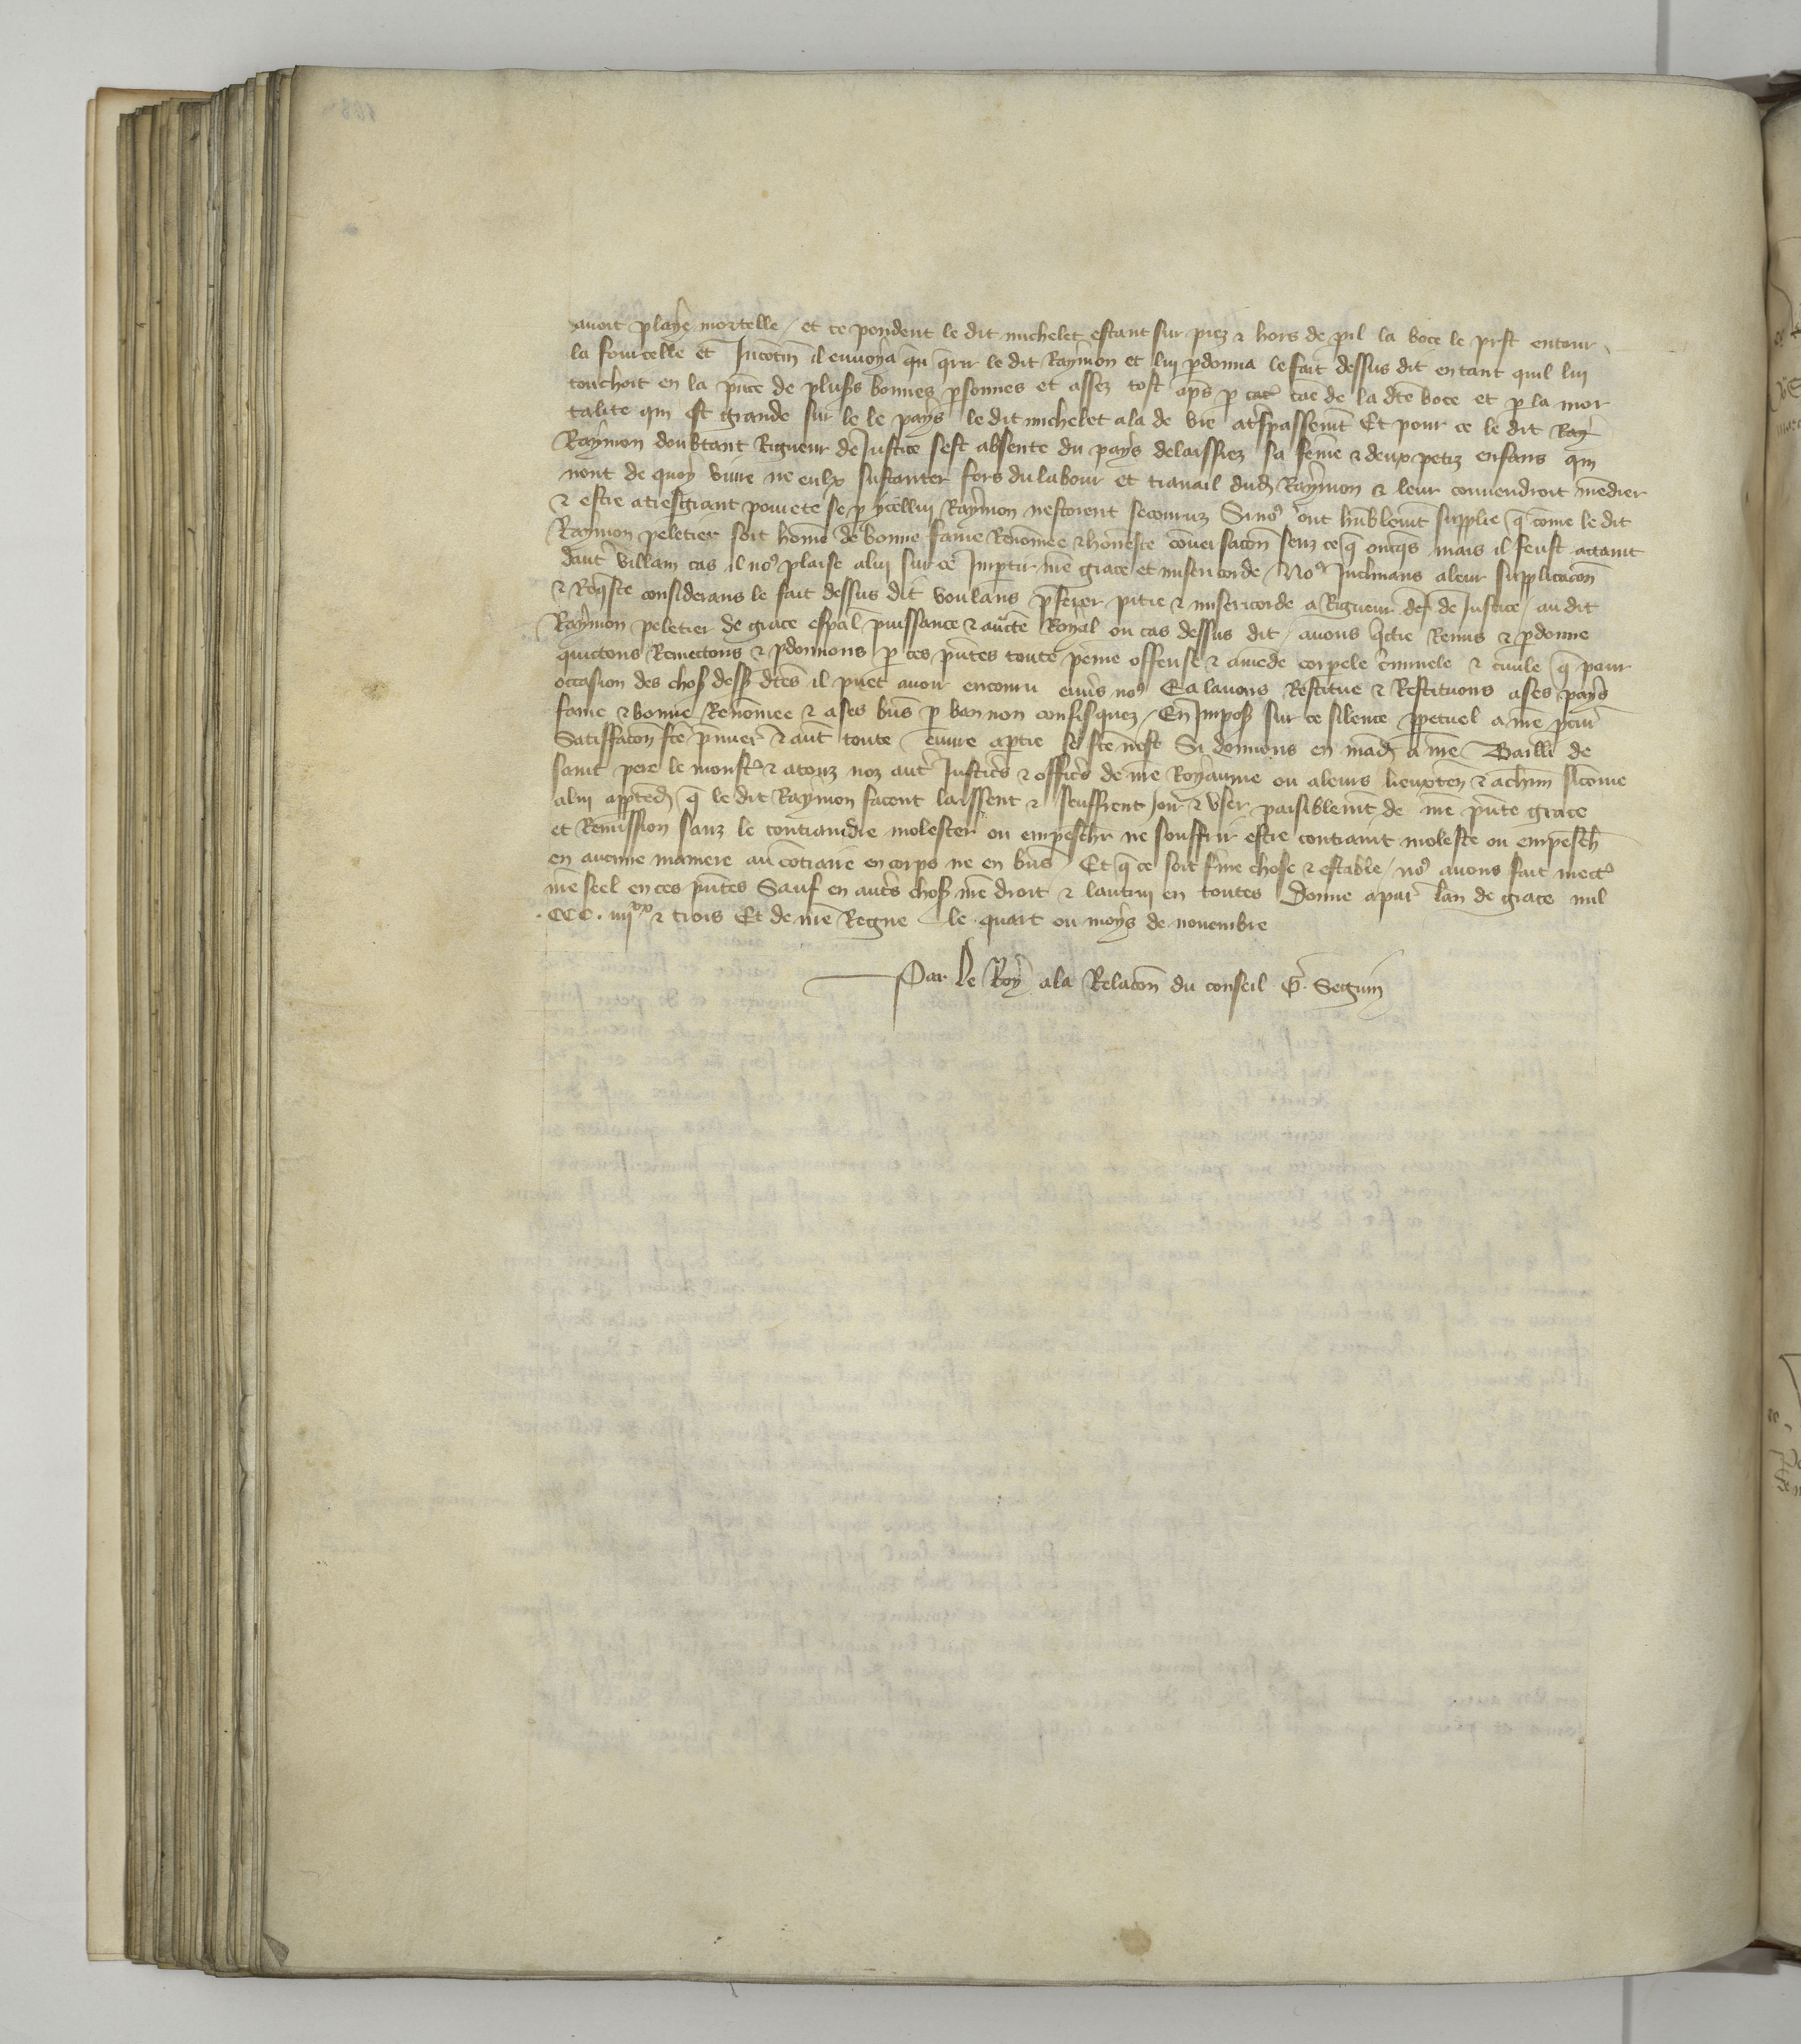 avoit playe mortelle / et ce pendent le dit michelet estant sur piez & hors de pil la boce le prist entour
la fourcelle et Incotin il envoya qu qrir le dit Raymon et lui pdonna le fait dessus dit en tant quil lui
touchoit en la pnce de plusrs bonnes psonnes et assez tost aps p cae de la dte boce et p la mor
talite qui est grande sur le le pays le dit michelet ala de vie a trspassemt Et pour ce le dit Ray
Raymon doubtant Rigueur de Justice sest absente du pays delaissiez sa feme & deux petiz enfans qui
nont de quoy vivre ne eulx sustanter fors du labour et travail dud Raymon & leur convendroit medier
& estre a tresgrant povrete se p ycellui Raymon nestoient secouruz Si nos ont hublemt supplie q come le dit
Raymon peletier soit home de bonne fame Renomee & honneste coversacon senz ce q oncqs mais il feust attaint
daut villain cas il nos plaise a lui sur ce Impartir nre grace et misericorde / Nos Inclinans a leur supplicacon
& Reqste considerans le fait dessus dit voulans pferer pitie & misericorde a Rigueur de de Justice / au dit
Raymon peletier de grace espal puissance & aucte Royal ou cas dessus dit / avons qctie Remis & pdonne
quictons Remectons & pdonnons p ces pntes toute peine offense & amede corpele criminele & civile q pour
occasion des chos dess dtes il puet avoir encouru envs nos Ea lavons Restitue & Restituons a ses pays
fame & bonne Renomee & a ses bns p ban non confisquez / En Impos sur ce silence ppetuel a nre pcur
Satisfacon fce pmier & avt toute euvre a ptie se fce nest Si donnons en mad a nre Bailli de
saint pere le moustr & a touz noz autr Justicrs & officrs de nre Royaume ou a leurs lieuxten & a chm sicome
a lui appted q le dit Raymon facent laissent & seuffrent joir & user paisiblemt de nre pnte grace
et Remission sanz le contraindre molester ou empeschr ne souffrir estre contraint moleste ou empesch
en aucune maniere au cotraire en corps ne en bns / Et q ce soit frme chose & estable / nos avons fait mectr
nre seel en ces pntes Sauf en autrs chos nre droit & lautrui en toutes Donne a paris lan de grace mil
. CCC . iiijxx & trois Et de nre Regne le quart ou moys de novembre
Par le Roy a la Relacon du conseil G. Seguin